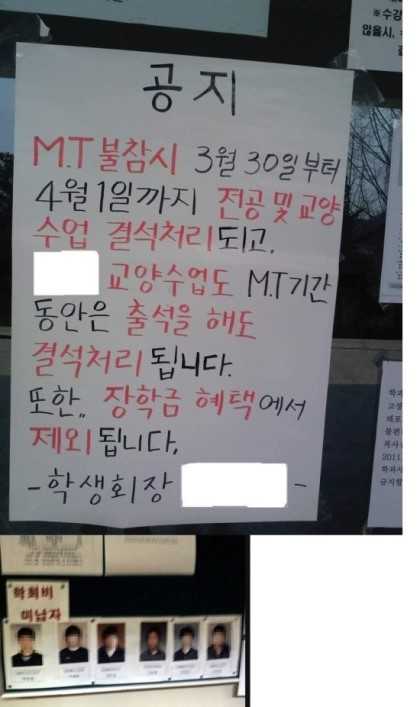 ※수강
않을시,
공지
M.T 불참시 3월 30일부터
4월 1일까지 전공 및 교양
수업 결석처리되고,
교양수업도 M.T기간
동안은 출석을 해도
결석처리 됩니다.
또한,, 장학금 혜택에서
제외됩니다.
-학생회장 -
2011
학회비
미납자